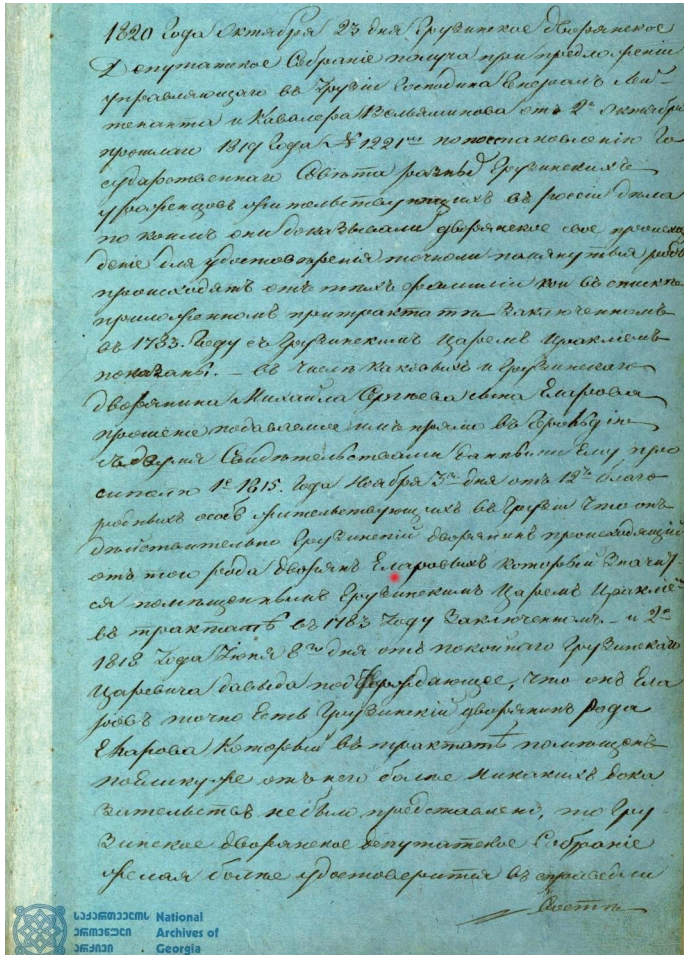 1820 Года Октября 23 дня Грузинское дворянское
Депутатское Собраніе получа при предложеніи
управляющаго въ Грузіи Господина Генералъ Лей-
тенанта и Кавалера Вельяминова отъ 2го Октября
прошлаго 1819 Года № 1221мъ по постановленію Го
сударственнаго Совѣта разныхъ Грузинскихъ
уроженцовъ жительствующихъ въ россіи дѣла
по коимъ они доказывали дворянское свое происхо
деніе для удостовѣренія точноли помянутыя роды
происходятъ отъ тѣхъ фамиліи кои въ спискѣ
приложенномъ при трактатѣ заключенномъ
въ 1783. Году съ Грузинскимъ Царемъ Иракліемъ
показаны. — въ числѣ каковыхъ и Грузинскаго
дворянина Михаила Сергѣева сына Еларова
прошеніе подаваемое имъ прямо въ
съ двумя Свидѣтельствами данными Ему про
сителю 1е 1815. Года Ноября 3го дня отъ 12ти благо
родныхъ особъ жительствующихъ въ Грузіи что онъ
дѣйствительно Грузинскій дворянинъ происходящій
отъ того рода дворянъ Еларовыхъ который значит
ся помѣщеннымъ Грузинскимъ Царемъ Иракліе
въ трактатѣ въ 1783 Году заключенномъ. — и 2е
1818 Года Іюня 8го дня отъ покойнаго Грузинскаго
Царевича давыда подтверждающее, что онъ Ела
ровъ точно Есть Грузинскій дворянинъ рода
Еларова который въ трактатѣ помѣщенъ
поеликуже отъ него болѣе никакихъ дока
зательствъ небыло представлено, то Гру
зинское дворянское депутатское Собраніе
желая болѣе удостоверится въ справедли
вости
საქართველოს National
ეროვნული Archives of
არქივი Georgia